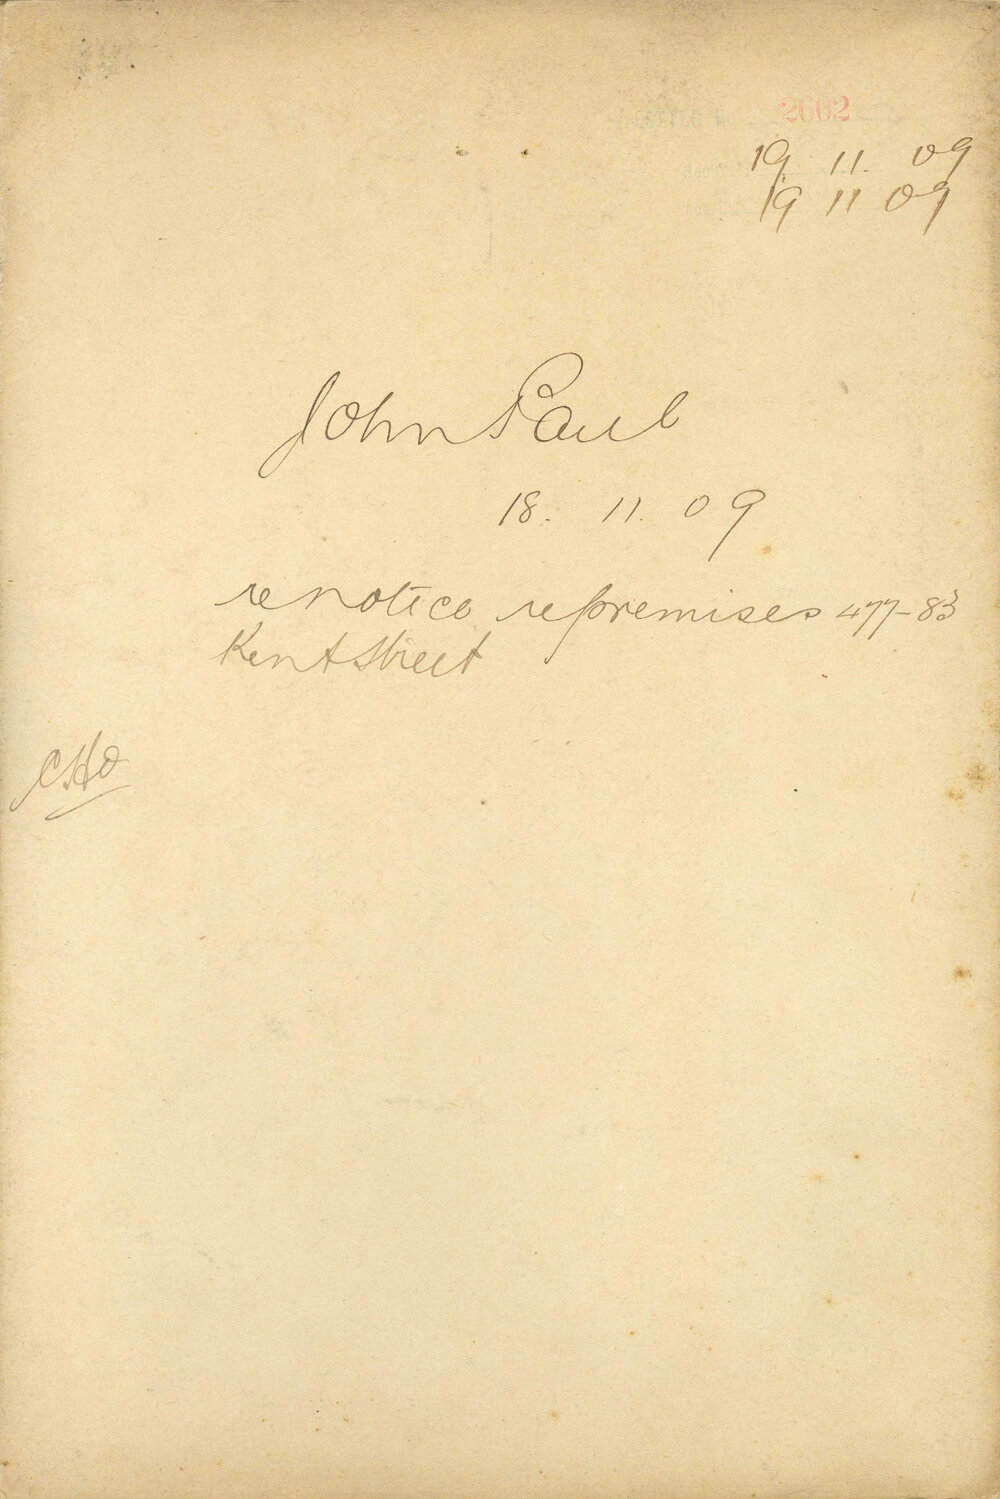 2002
19. 11. 09
19 11 09
John Paul
18. 11. 09
re notice re premises 477-83
Kent Street
C.H.O